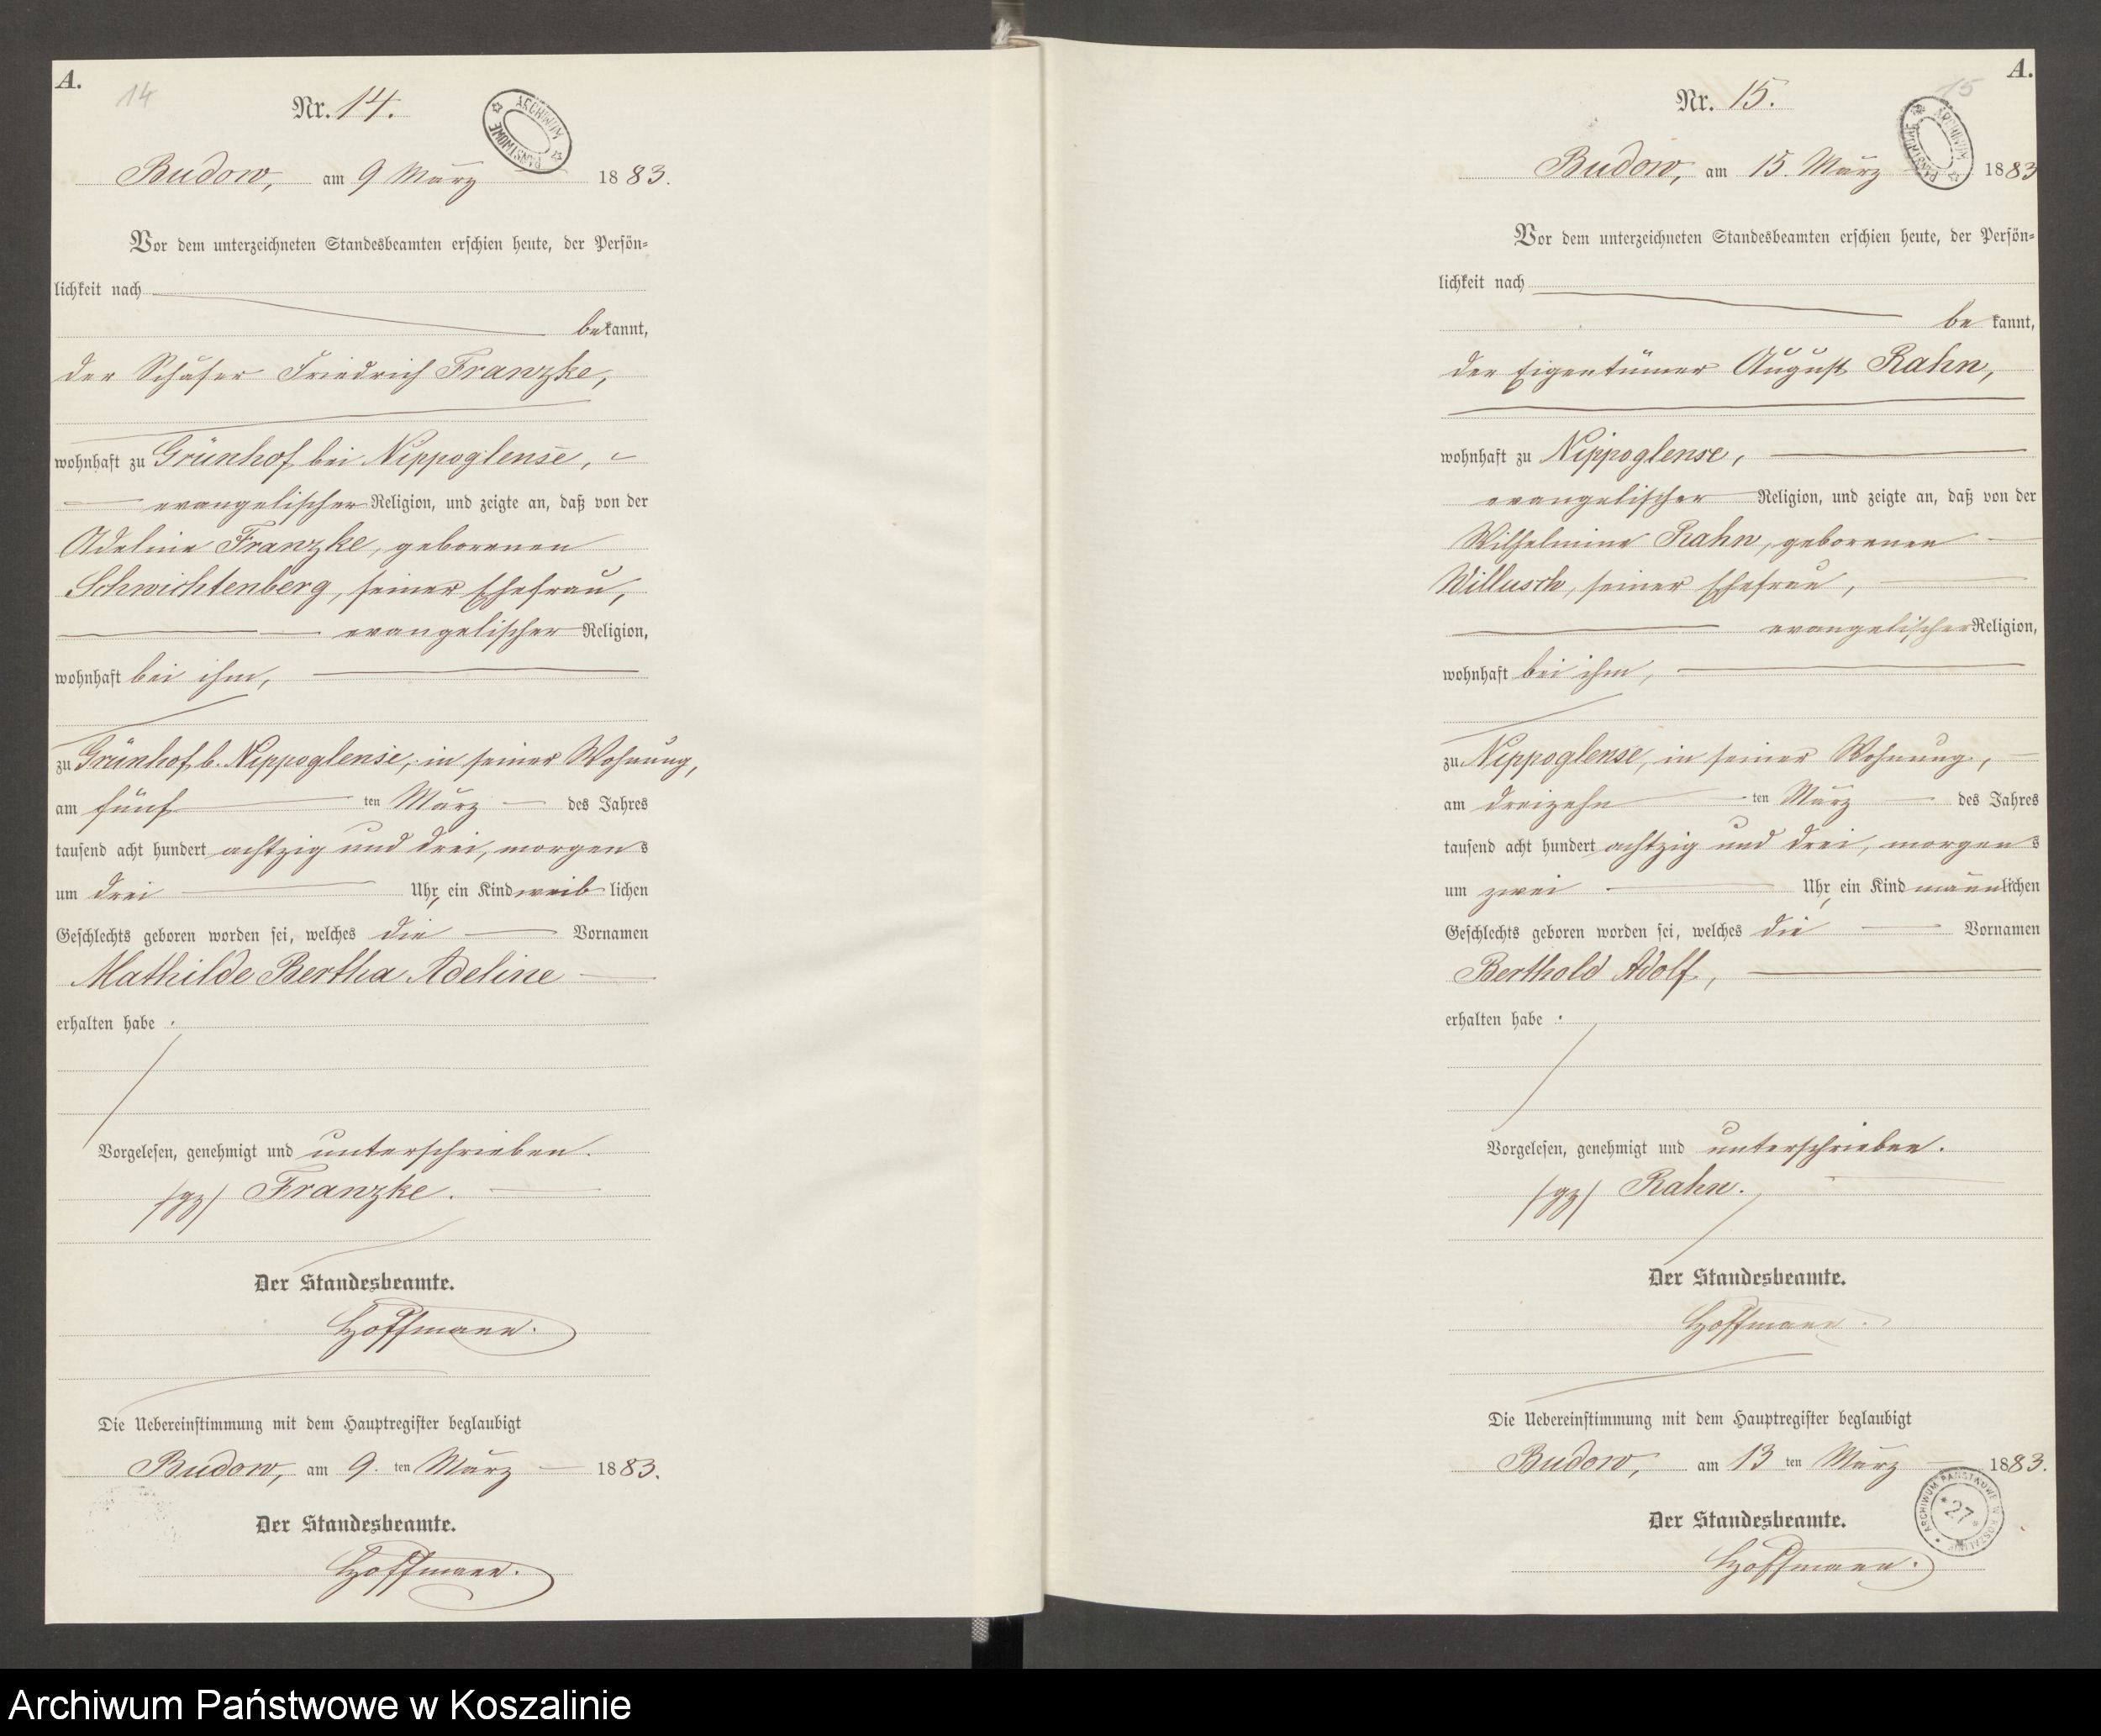 A.
14
Nr. 14.
ARCHIWUM PAŃSTWOWE
Budow, am 9 März 1883.
Vor dem unterzeichneten Standesbeamten erschien heute, der Persön-
lichkeit nach
bekannt,
der Schäfer Friedrich Franzke,
wohnhaft zu Grünhof bei Nippoglense,
evangelischer Religion, und zeigte an, daß von der
Adeline Franzke, geborenen
Schwichtenberg, seiner Ehefrau,
evangelischer Religion,
wohnhaft bei ihm,
zu Grünhof b. Nippoglense, in seiner Wohnung,
am fünf ten März des Jahres
tausend acht hundert achtzig und drei, morgens
um drei Uhr, ein Kind weiblichen
Geschlechts geboren worden sei, welches die Vornamen
Mathilde Bertha Adeline
erhalten habe.
Vorgelesen, genehmigt und unterschrieben.
/gz/ Franzke.
Der Standesbeamte.
Hoffmann.
Die Uebereinstimmung mit dem Hauptregister beglaubigt
Budow, am 9. ten März 1883.
Der Standesbeamte.
Hoffmann.
A.
15
Nr. 15.
ARCHIWUM PAŃSTWOWE
Budow, am 15. März 1883
Vor dem unterzeichneten Standesbeamten erschien heute, der Persön-
lichkeit nach
bekannt,
der Eigentümer August Rahn,
wohnhaft zu Nippoglense,
evangelischer Religion, und zeigte an, daß von der
Wilhelmine Rahn, geborenen
Willusch, seiner Ehefrau,
evangelischer Religion,
wohnhaft bei ihm,
zu Nippoglense, in seiner Wohnung,
am dreizehn ten März des Jahres
tausend acht hundert achtzig und drei, morgens
um zwei Uhr, ein Kind männlichen
Geschlechts geboren worden sei, welches die Vornamen
Berthold Adolf,
erhalten habe.
Vorgelesen, genehmigt und unterschrieben.
/gz/ Rahn.
Der Standesbeamte.
Hoffmann.
Die Uebereinstimmung mit dem Hauptregister beglaubigt
Budow, am 13 ten März 1883.
ARCHIWUM PAŃSTWOWE W KOSZALINIE
27
Der Standesbeamte.
Hoffmann.
Archiwum Państwowe w Koszalinie